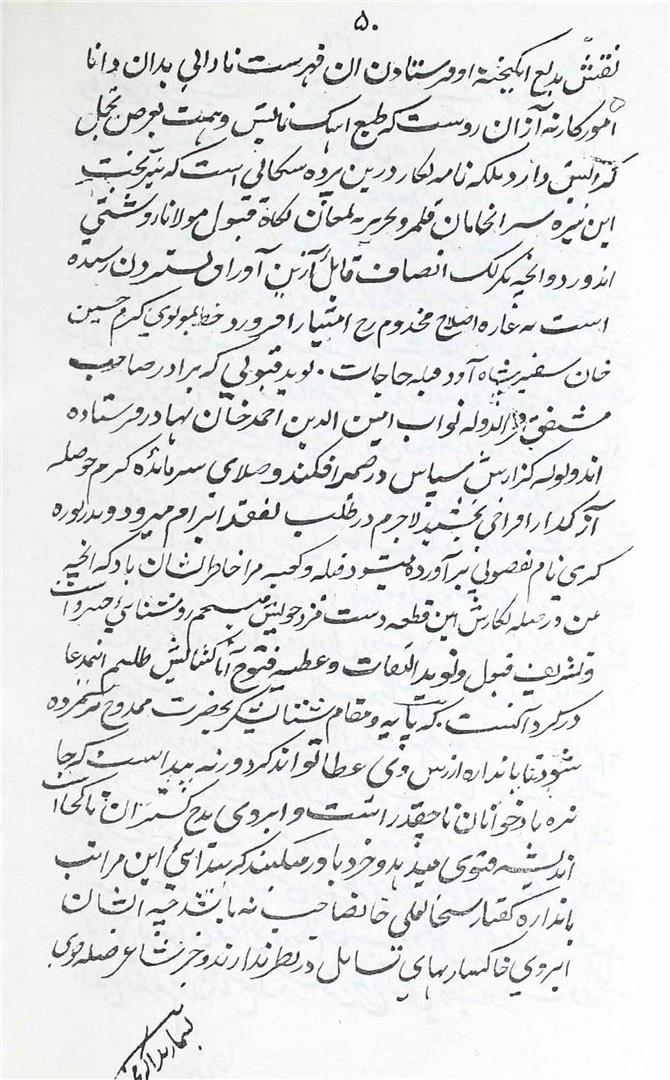 ۵۰
نقش بدیع انگیختهٔ او فرستادن آن فهرست نادانی بدان دانا
آموزگار نه از آن روست که طبع آهنگ نمایش و همت بعرض تجمل
گرایش دارد بلکه نامه نگار درین پرده سگالی است که نیر بخت
این تیره سرانجامان قلمرو تحریر به لمعان نگاه قبول مولانا روشنی
اندوزد و آنچه بگزلک انصاف قابل از این اوراق ستردن رسیده
است به اصلاح مخدوم رخ امتیاز افروزد خط بمولوی کرم حسین
خان سفیر شاه اود قبله حاجات . نوید قبولی که برادر صاحب
مشفق الدوله نواب امین الدین احمد خان بهادر فرستاده
اند ولوله گزارش سپاس در ضمیر افکند و صلای سر مائدهٔ کرم حوصله
آز گدا را فراخی بخشید لاجرم در طلب تفقد ابرام میرود و بدریوزه
گری نام بفضولی برآورده میشود قبله و کعبه مرا خاطرنشان باد که آنچه
من در صله نگارش این قطعه دست مزد خویش میسنجم روشنائی است
و تشریف قبول و نوید التفات و عطیه فتوح آنا گشایش طلسم این مدعا
در گرو آنست که پایه و مقام ستایشگر بحضرت ممدوح شمرده
شود تا باندازه ارزش وی عطا تواند کرد ورنه پیداست که جا
نره بادخوانان تا چقدر است و ابروی مدح گستران تا کجا
اندیشه فتوی میدهد و خرد باور میکند که پیدائی این مراتب
باندازه گفتار سبحانعلی خانصاحب نه باشد چه ایشان
ابروی خاکساریهای سایل در نظر ندارند و جز شاعر صله جوی